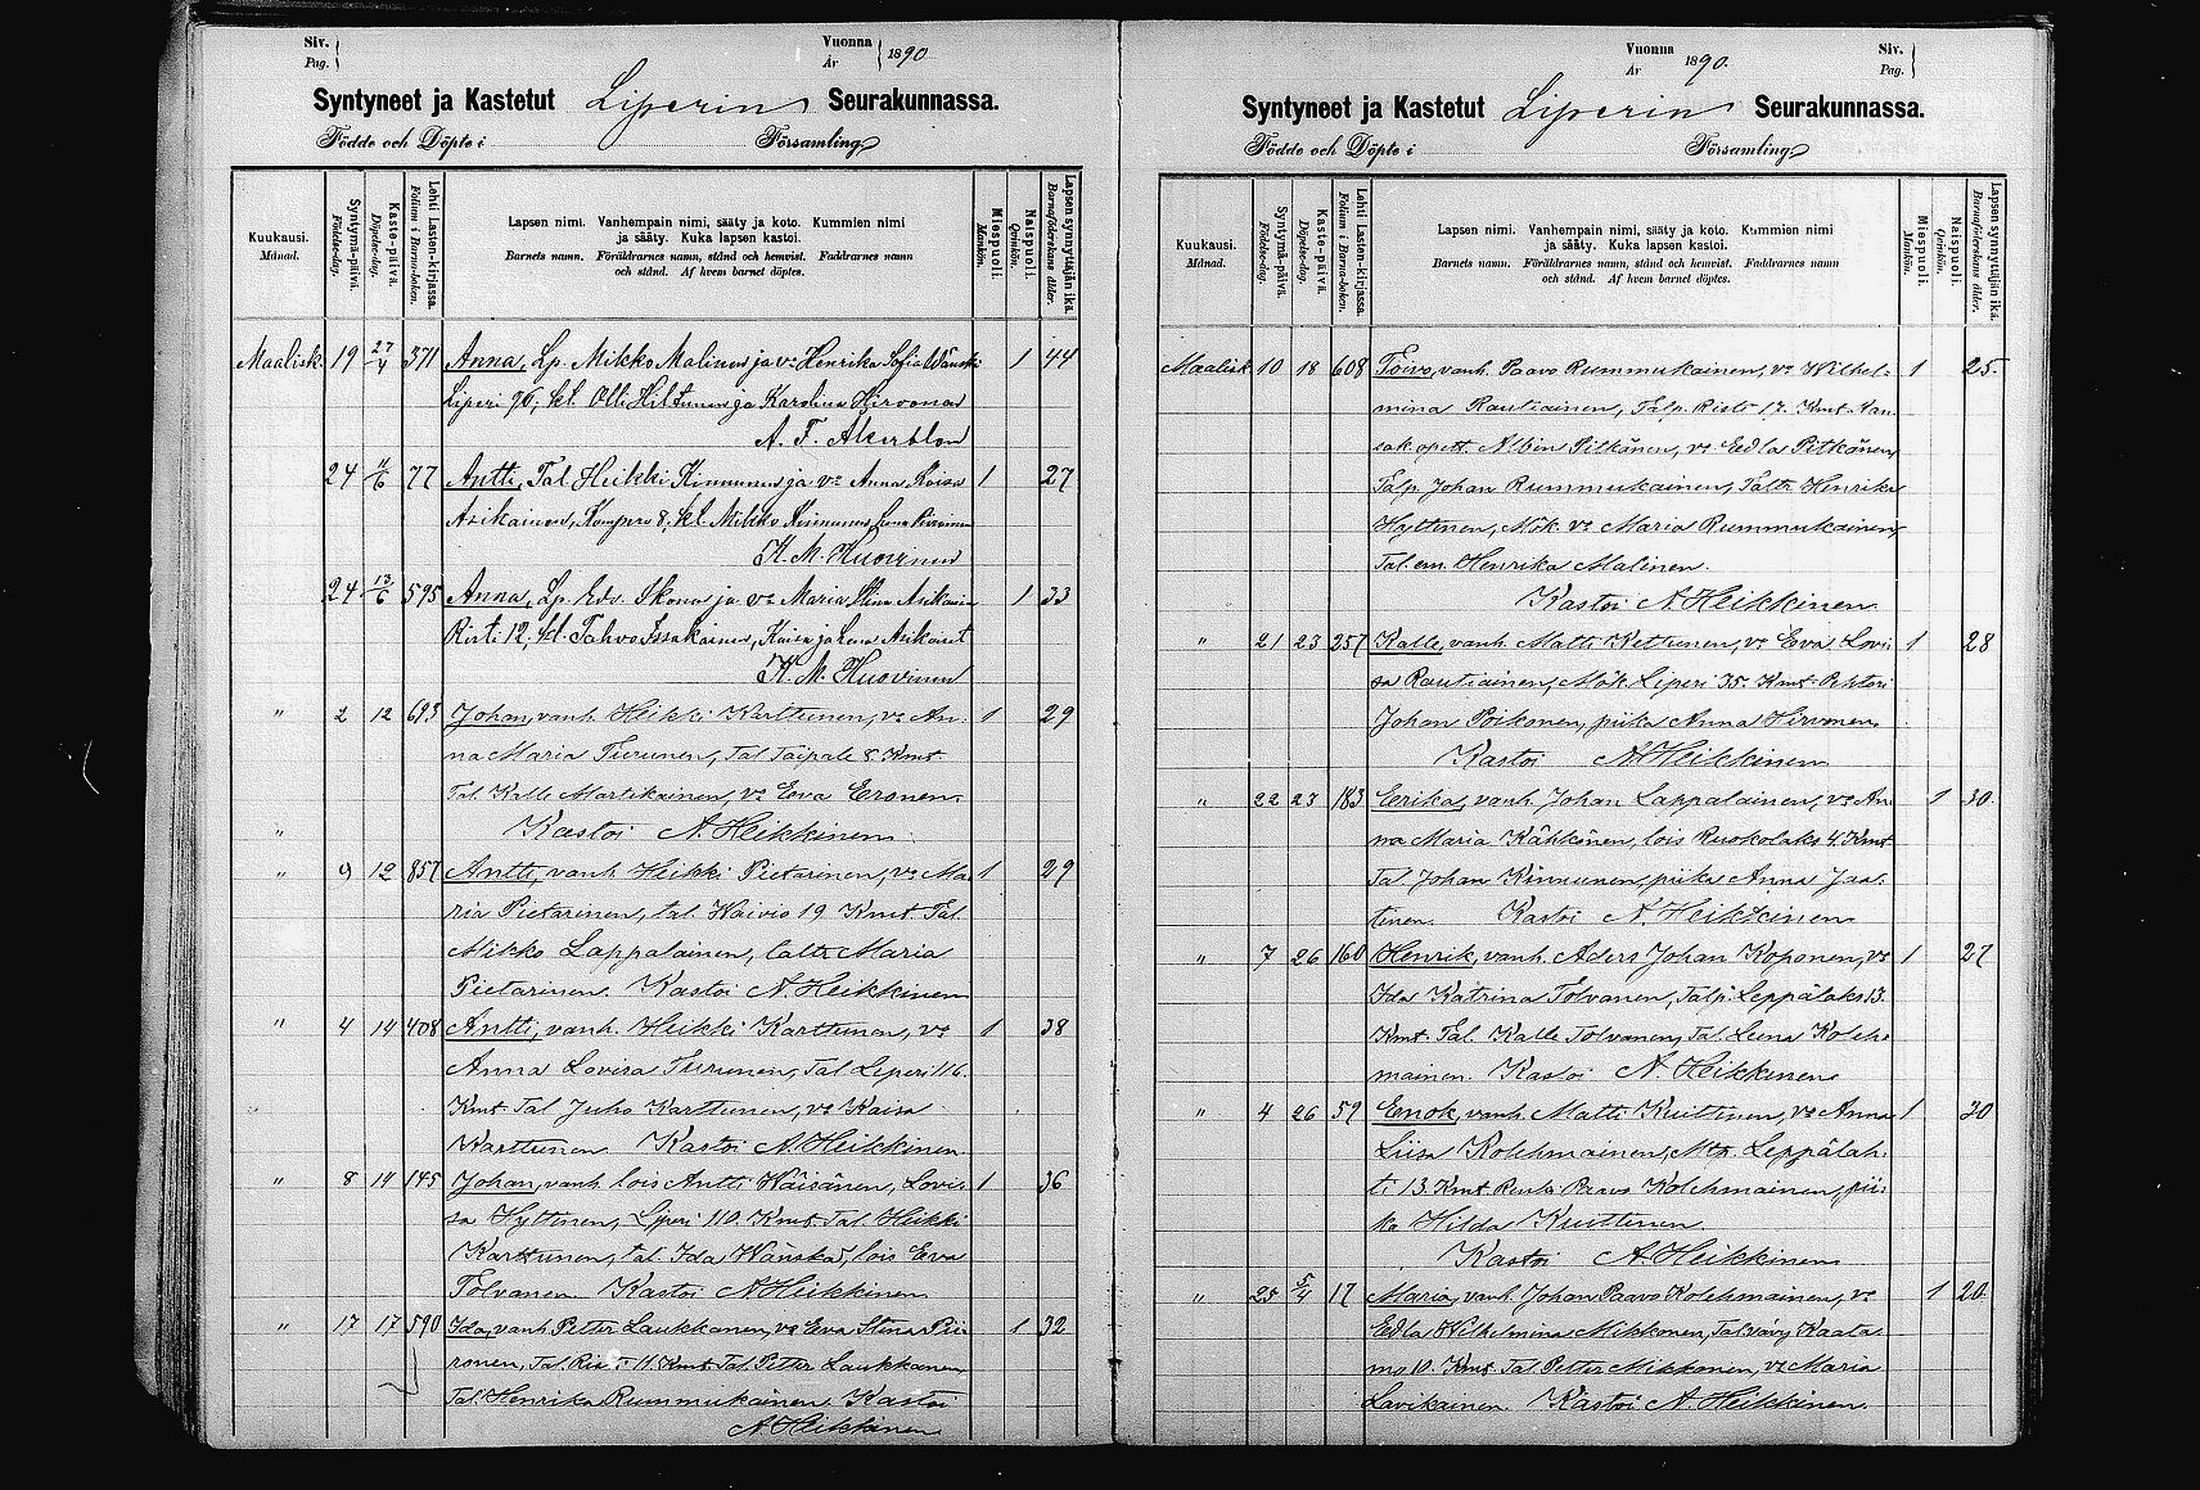 Siv.
Pag.
Vuonna
År
1890
Syntyneet ja Kastetut Liperin Seurakunnassa.
Födde och Döpte i Församling
Kuukausi.
Månad.
Syntymä-päivä.
Födelse-dag.
Kaste-päivä.
Döpelse-dag.
Lehti Lasten-kirjassa.
Folium i Barna-boken.
Lapsen nimi. Vanhempain nimi, sääty ja koto. Kummien nimi
ja sääty. Kuka lapsen kastoi.
Barnets namn. Föräldrarnes namn, stånd och hemvist. Faddrarnes namn
och stånd. Af hvem barnet döptes.
Miespuoli.
Mankön.
Naispuoli.
Qvinkön.
Lapsen synnyttäjän ikä.
Barnaföderskans ålder.
Maalisk. 19 27/4 371 Anna, Lp. Mikko Malinen ja vo Henrika Sofia Wänskä 1 44
Liperi 96; kt. Olli Hiltunen ja Karolina Hirvonen
A. F. Akerblom
24 11/6 77 Antti, Tal. Heikki Kinnunen ja vo Anna Kaisa 1 27
Asikainen, Kompero 8; kt. Mikko Kinnunen, Leena
H. M. Huovinen
24 13/6 595 Anna, Lp. Edv. Ikonen ja vo Maria Stina Asikainen 1 33
Risti 12; kt. Tahvo Issakainen, Kaisa ja Leena Asikaiset
H. M. Huovinen
" 2 12 693 Johan, vanh. Heikki Karttunen, vo An- 1 29
na Maria Turunen, Tal Taipale 8. Kmt.
Tal. Kalle Martikainen, vo Eeva Eronen.
" Kastoi A. Heikkinen
" 9 12 857 Antti, vanh. Heikki Pietarinen, vo Ma- 1 29
ria Pietarinen, tal. Waivio 19 Kmt. Tal.
Mikko Lappalainen, taltr. Maria
Pietarinen. Kastoi A. Heikkinen
" 4 14 408 Antti, vanh. Heikki Karttunen, vo 1 38
Anna Lovisa Turunen, Tal Liperi 116.
Kmt. Tal Juho Karttunen, vo Kaisa
Karttunen Kastoi A. Heikkinen.
" 8 14 145 Johan, vanh. lois Antti Wäisänen, Lovi- 1 36
sa Hyttinen, Liperi 110. Kmt. Tal. Heikki
Karttunen, tal. Ida Wänskä, lois Eeva
Tolvanen. Kastoi A. Heikkinen
" 17 17 590 Ida, vanh. Petter Laukkanen, vo Eva Stina Pii- 1 32
ronen, Tal. Risti 11. Kmt. Tal. Petter Laukkanen,
Tal. Henrika Rummukainen. Kastoi
A. Heikkinen
Vuonna
År
1890.
Siv.
Pag.
Syntyneet ja Kastetut Liperin Seurakunnassa.
Födde och Döpte i Församling
Kuukausi.
Månad.
Syntymä-päivä.
Födelse-dag.
Kaste-päivä.
Döpelse-dag.
Lehti Lasten-kirjassa.
Folium i Barna-boken.
Lapsen nimi. Vanhempain nimi, sääty ja koto. Kummien nimi
ja sääty. Kuka lapsen kastoi.
Barnets namn. Föräldrarnes namn, stånd och hemvist. Faddrarnes namn
och stånd. Af hvem barnet döptes.
Miespuoli.
Mankön.
Naispuoli.
Qvinkön.
Lapsen synnyttäjän ikä.
Barnaföderskans ålder.
Maalisk. 10 18 608 Toivo, vanh. Paavo Rummukainen, vo Wilhel- 1 25.
mina Rautiainen, Talp. Risti 17. Kmt. Kan-
sak. opett. Albin Pitkänen, vo Eedla Pitkänen,
Talp. Johan Rummukainen, Taltr. Henrika
Hyttinen, Mök. vo Maria Rummukainen,
Tal. em. Henrika Malinen.
Kastoi A. Heikkinen.
" 21 23 257 Kalle, vanh. Matti Kettunen, vo Eeva Lovi- 1 28
sa Rautiainen, Mök. Liperi 35. Kmt. Pehtori
Johan Poikonen, piika Anna Hirvonen.
Kastoi A. Heikkinen
" 22 23 183 Eerika, vanh. Johan Lappalainen, vo An- 1 30.
na Maria Kähkönen, lois Ruokolaks 4. Kmt.
Tal. Johan Kinnunen, piika Anna Jaa-
tinen. Kastoi A. Heikkinen
" 7 26 160 Henrik, vanh. Aders Johan Koponen, vo 1 27
Ida Katrina Tolvanen, Talp. Leppälaks 13.
Kmt. Tal. Kalle Tolvanen, Tal. Leena Koleh-
mainen. Kastoi A. Heikkinen
" 4 26 59 Eenok, vanh. Matti Kuittinen, vo Anna 1 30
Liisa Kolehmainen, Mtp. Leppälah-
ti 13. Kmt. Renki Paavo Kolehmainen, pii-
ka Hilda Kuittinen.
Kastoi A. Heikkinen
" 25 5/4 17 Maria, vanh. Johan Paavo Kolehmainen, vo 1 20.
Eedla Wilhelmina Mikkonen, Tal. vävy Kaata-
mo 10. Kmt. Tal. Petter Mikkonen, vo Maria
Lavikainen. Kastoi A. Heikkinen.